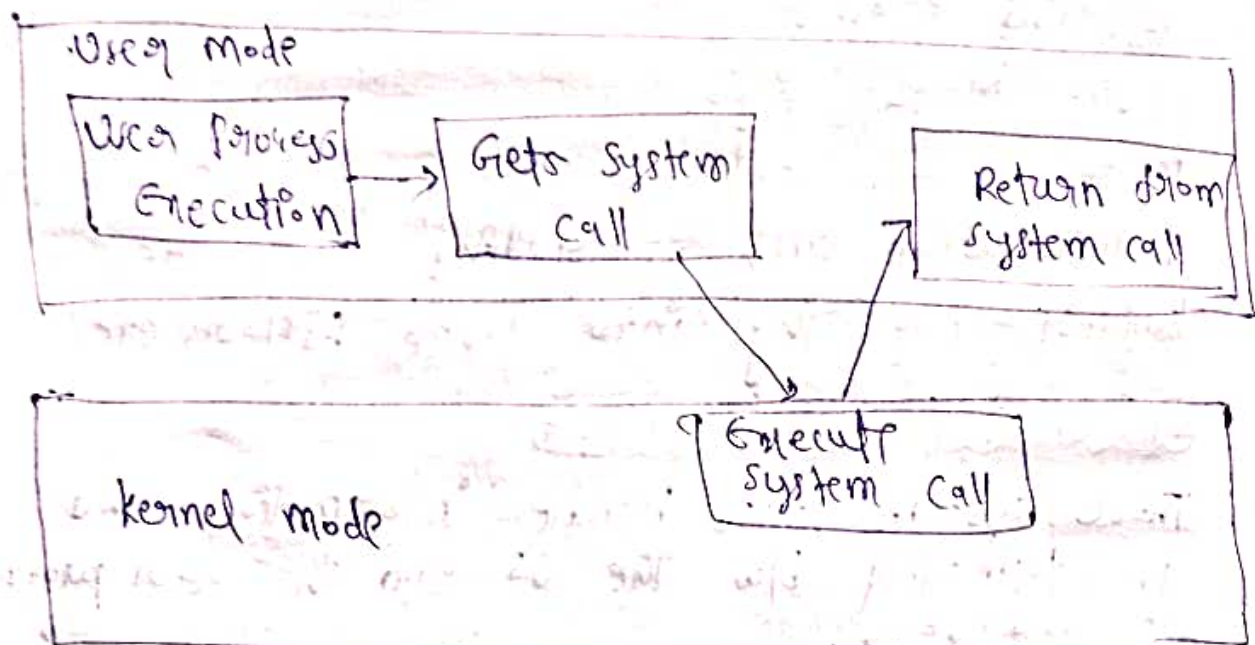 User mode
User Process
Execution
Gets system
call
Return from
system call
Execute
system call
kernel mode